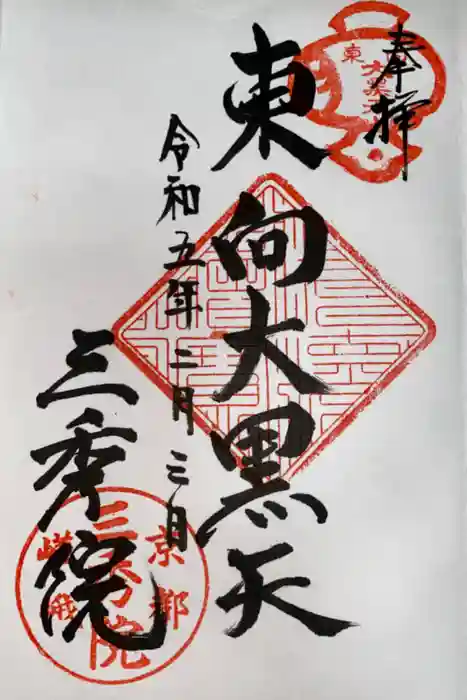 奉拝
東向大黒天
令和五年二月三日
三秀院
東
大黒天
京都
三秀院
嵯峨